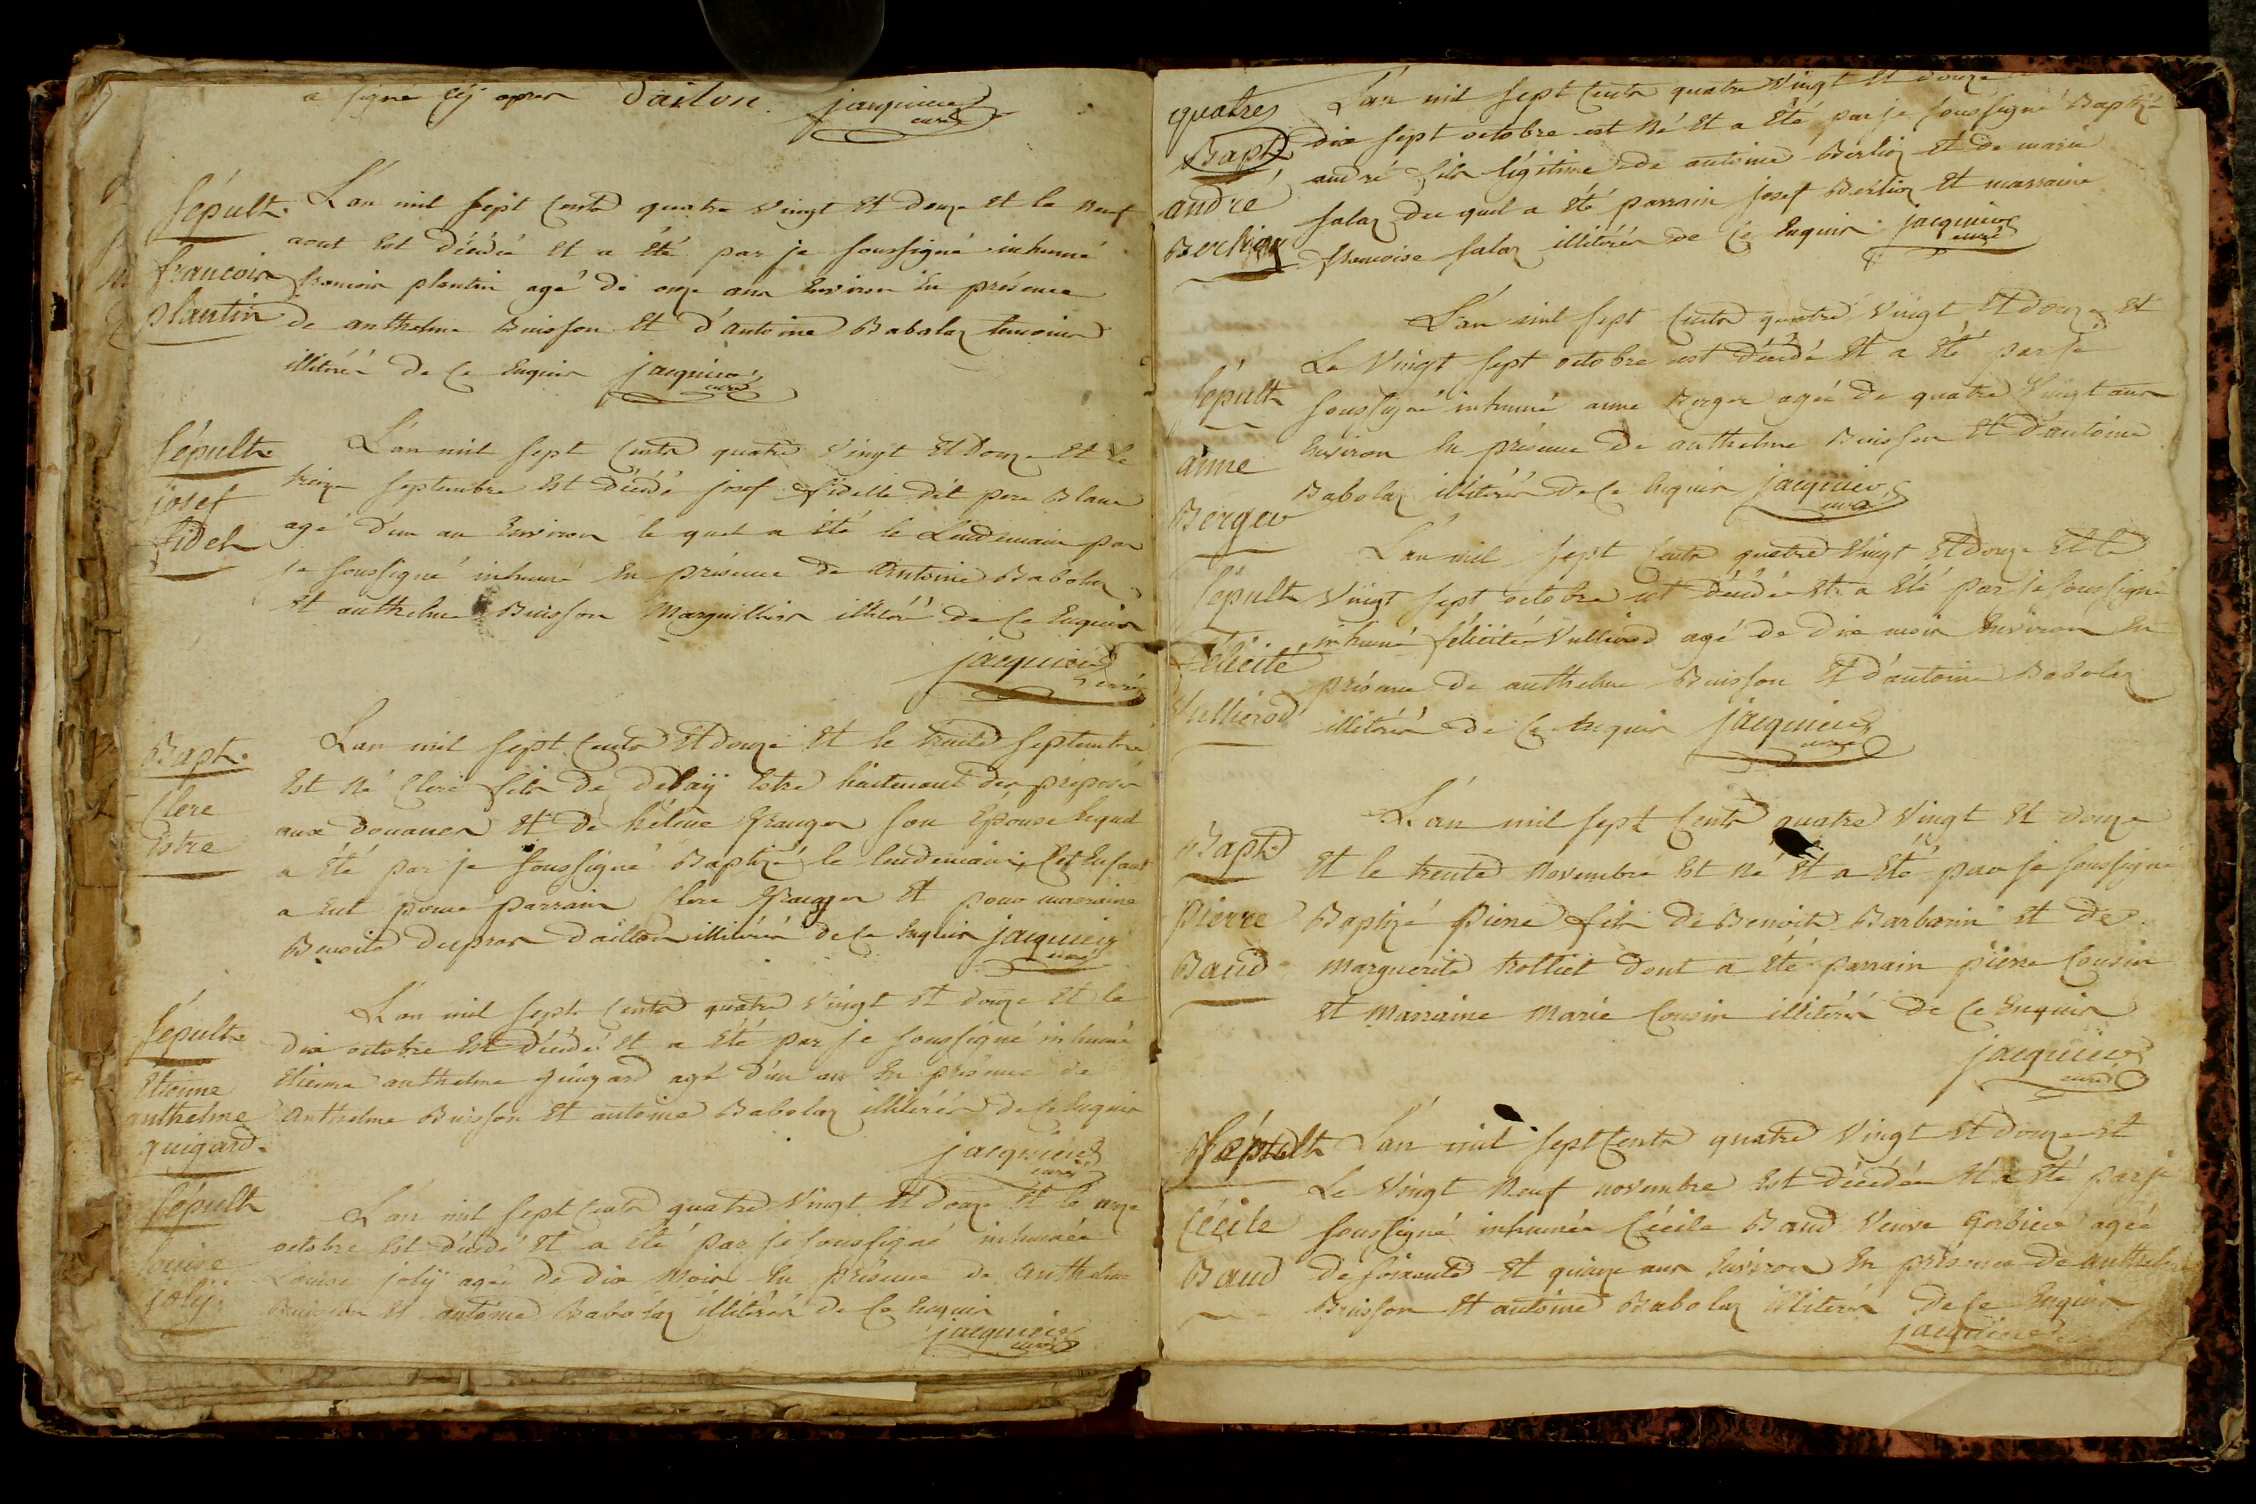 a signé cÿ apres Dailon. jacquier
curé
Sépult.
françois
plantin
L'an mil sept cents quatre vingt et douze et le neuf
aout est décédé et a été par je soussigné inhumé
francois plantin agé de onze ans environ en présence
de anthelme Buisson et d'antoine Babolaz temoins
illitérés de ce enquis jacquier
curé
Sépult.
josef
fidel
L'an mil sept cents quatre vingt et douze et le
treize septembre est décédé josef fidelle dit pere Blanc
agé d'un an environ le quel a été le lendemain par
je soussigné inhumé en présence de antoine Babolaz
et anthelme Buisson marguillier illitérés de ce enquis
jacquier
curé
Bapt.
Clere
Estre
L'an mil sept cents et douze et le trente septembre
est né Clere fils de delaÿ Estre lieutenant des préposés
aux douanes et de hélène Granger son épouse lequel
a été par je soussigné Baptizé le lendemain, Cet enfant
a eut pour parrain Clere Granger et pour marraine
Benoite dupras d'aillon illitérés de ce enquis jacquier
curé
Sépult.
Etienne
anthelme
guigard.
L'an mil sept cents quatre vingt et douze et le
dix octobre est décédé et a été par je soussigné inhumé
etienne anthelme guigard agé d'un an en présence de
anthelme Buisson et antoine Babolaz illitérés de ce enquis
jacquier
curé
Sépult
louise
jolÿ
L'an mil sept cents quatre vingt et douze et le onze
octobre est décédé et a été par je soussigné inhumée
Louise jolÿ agée de dix mois en présence de anthelme
Buisson et antoine Babolaz illitérés de ce enquis
jacquier
curé
quatre
Bapt.
andré
Berlioz
L'an mil sept cents quatre vingt et douze
dix sept octobre est né et a été par je soussigné Baptizé
andré fils légitime de antoine Berlioz et de marie
salaz du quel a été parrain josef Berlioz et marraine
francoise salaz illitérés de ce enquis jacquier
curé
Sépult
anne
Berger
L'an mil sept cents quatre vingt et douze et
Le vingt sept octobre est décédé et a été par je
soussigné inhumé anne Berger agée de quatre vingt ans
environ en présence de anthelme Buisson et d'antoine
Babolaz illitérés de ce enquis jacquier
curé
Sépult
félicité
Vulliérod
L'an mil sept cents quatre vingt et douze et le
vingt sept octobre est décédée et a été par je soussigné
inhumé félicité Vulliérod agé de dix mois environ en
présence de anthelme Buisson et d'antoine Babolaz
illitérés de ce enquis jacquier
curé
Bapt.
pierre
Baud
L'an mil sept cents quatre vingt et douze
et le trente novembre est né et a été par je soussigné
Baptizé pierre fils de Benoit Barbarin et de
marguerite trolliet dont a été parrain pierre Cousin
et marraine marie Cousin illitérés de ce enquis
jacquier
curé
Sépult
Cécile
Baud
L'an mil sept cents quatre vingt et douze et
Le vingt neuf novembre est décédée et a été par je
soussigné inhumée Cécile Baud veuve agée
de soixante et quinze ans environ en présence de anthelme
Buisson et antoine Babolaz illitérés de ce enquis
jacquier